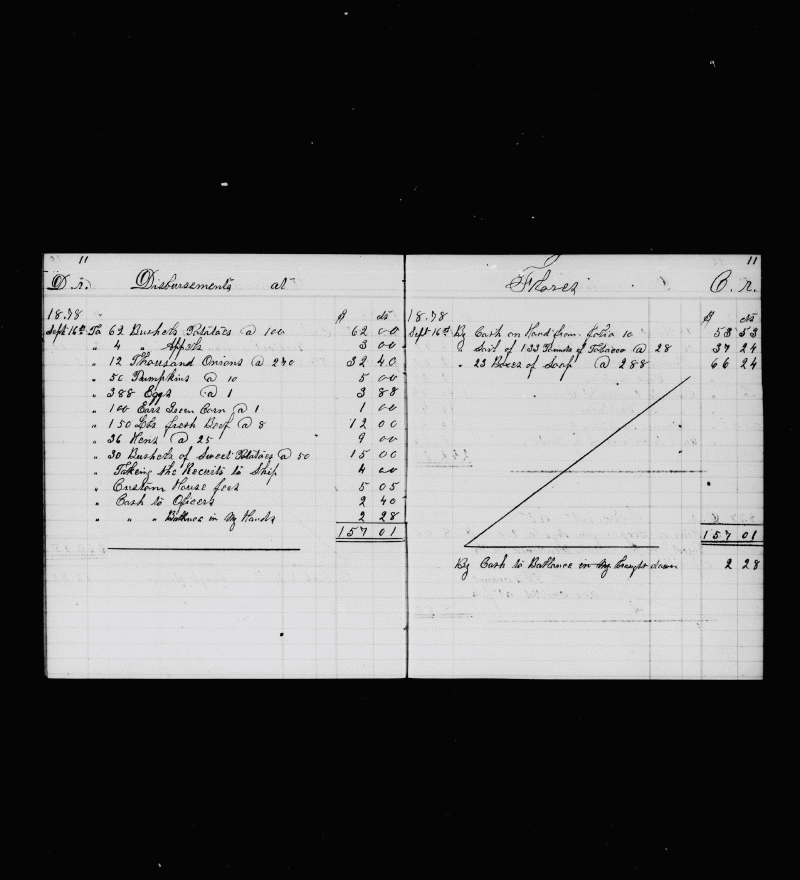 11
D. r. Disbursements at
1878 $ cts
Sept 16th To 62 Bushels Potatoes @ 100 62 00
" 4 " Appels 3 00
" 12 Thousand Onions @ 270 32 40
" 50 Pumpkins @ 10 5 00
" 388 Eggs @ 1 3 88
" 100 Ears Green Corn @ 1 1 00
" 150 Lbs fresh Beef @ 8 12 00
" 36 Hens @ 25 9 00
" 30 Bushels of Sweet Potatoes @ 50 15 00
" Takeing the Recruits to Ship 4 00
" Custom House fees 5 05
" Cash to Officers 2 40
" " " Ballance in My Hands 2 28
157 01
11
Flores C. r.
1878 $ cts
Sept 16th By Cash on Hand from folio 10 53 53
" Sail of 133 Pounds of Tobacco @ 28 37 24
" 23 Boxes of Soap @ 288 66 24
157 01
By Cash to Ballance in My brought down 2 28